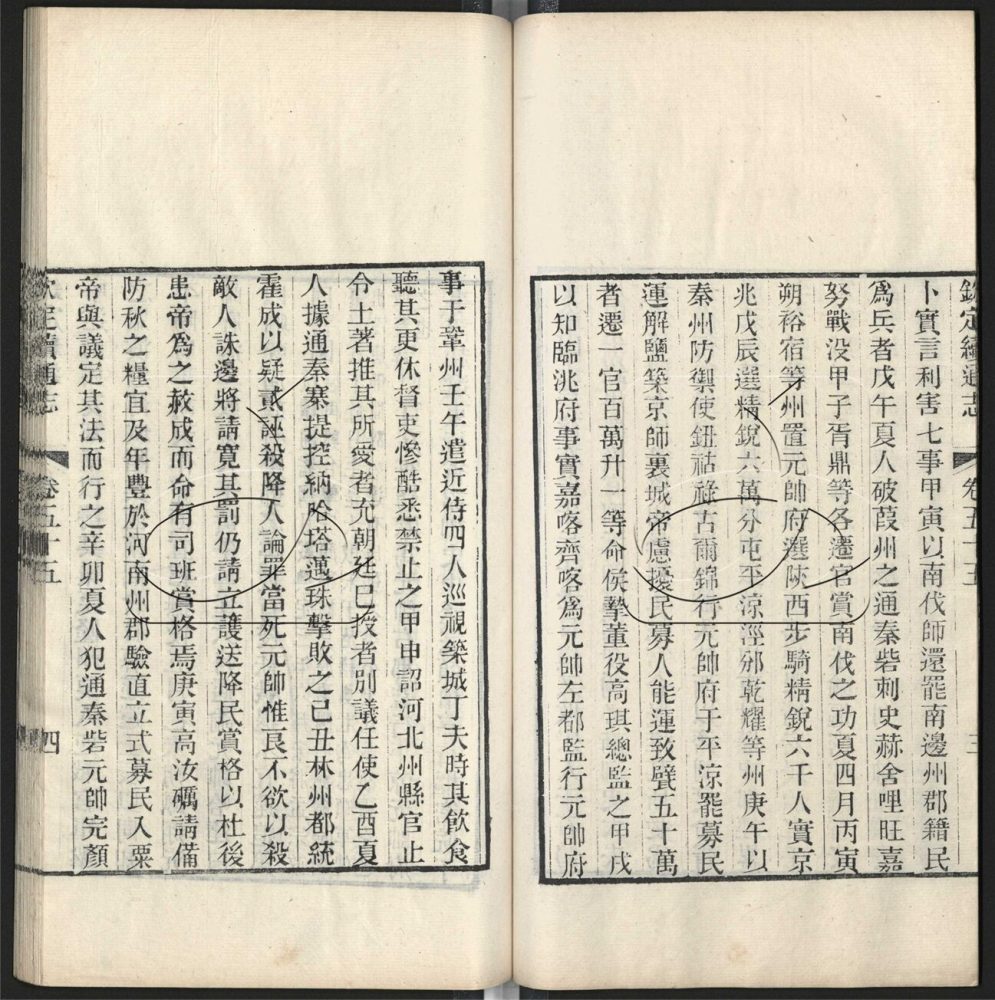 欽定續通志 卷五十五 三
卜實言利害七事甲寅以南伐師還罷南邊州郡籍民
爲兵者戊午夏人破葭州之通秦砦刺史赫舍哩旺嘉
努戰没甲子胥鼎等各遷官賞南伐之功夏四月丙寅
朔裕宿等州置元帥府選陝西步騎精銳六千人實京
兆戊辰選精銳六萬分屯平涼涇邠乾耀等州庚午以
秦州防禦使鈕祜祿古爾錦行元帥府于平涼罷募民
運解鹽築京師裏城帝慮擾民募人能運致甓五十萬
者遷一官百萬升一等命侯摯董役高琪總監之甲戌
以知臨洮府事實嘉喀齊喀爲元帥左都監行元帥府
事于鞏州壬午遣近侍四人巡視築城丁夫時其飲食
聽其更休督吏慘酷悉禁止之甲申詔河北州縣官止
令土著推其所愛者充朝廷已授者別議任使乙酉夏
人據通秦寨提控納哈塔邁珠擊敗之己丑林州都統
霍成以疑貳誣殺降人論罪當死元帥惟良不欲以殺
敵人誅邊將請寬其罰仍請立護送降民賞格以杜後
患帝爲之赦成而命有司班賞格焉庚寅高汝礪請備
防秋之糧宜及年豐於河南州郡驗直立式募民入粟
帝與議定其法而行之辛卯夏人犯通秦砦元帥完顏
欽定續通志 卷五十五 四